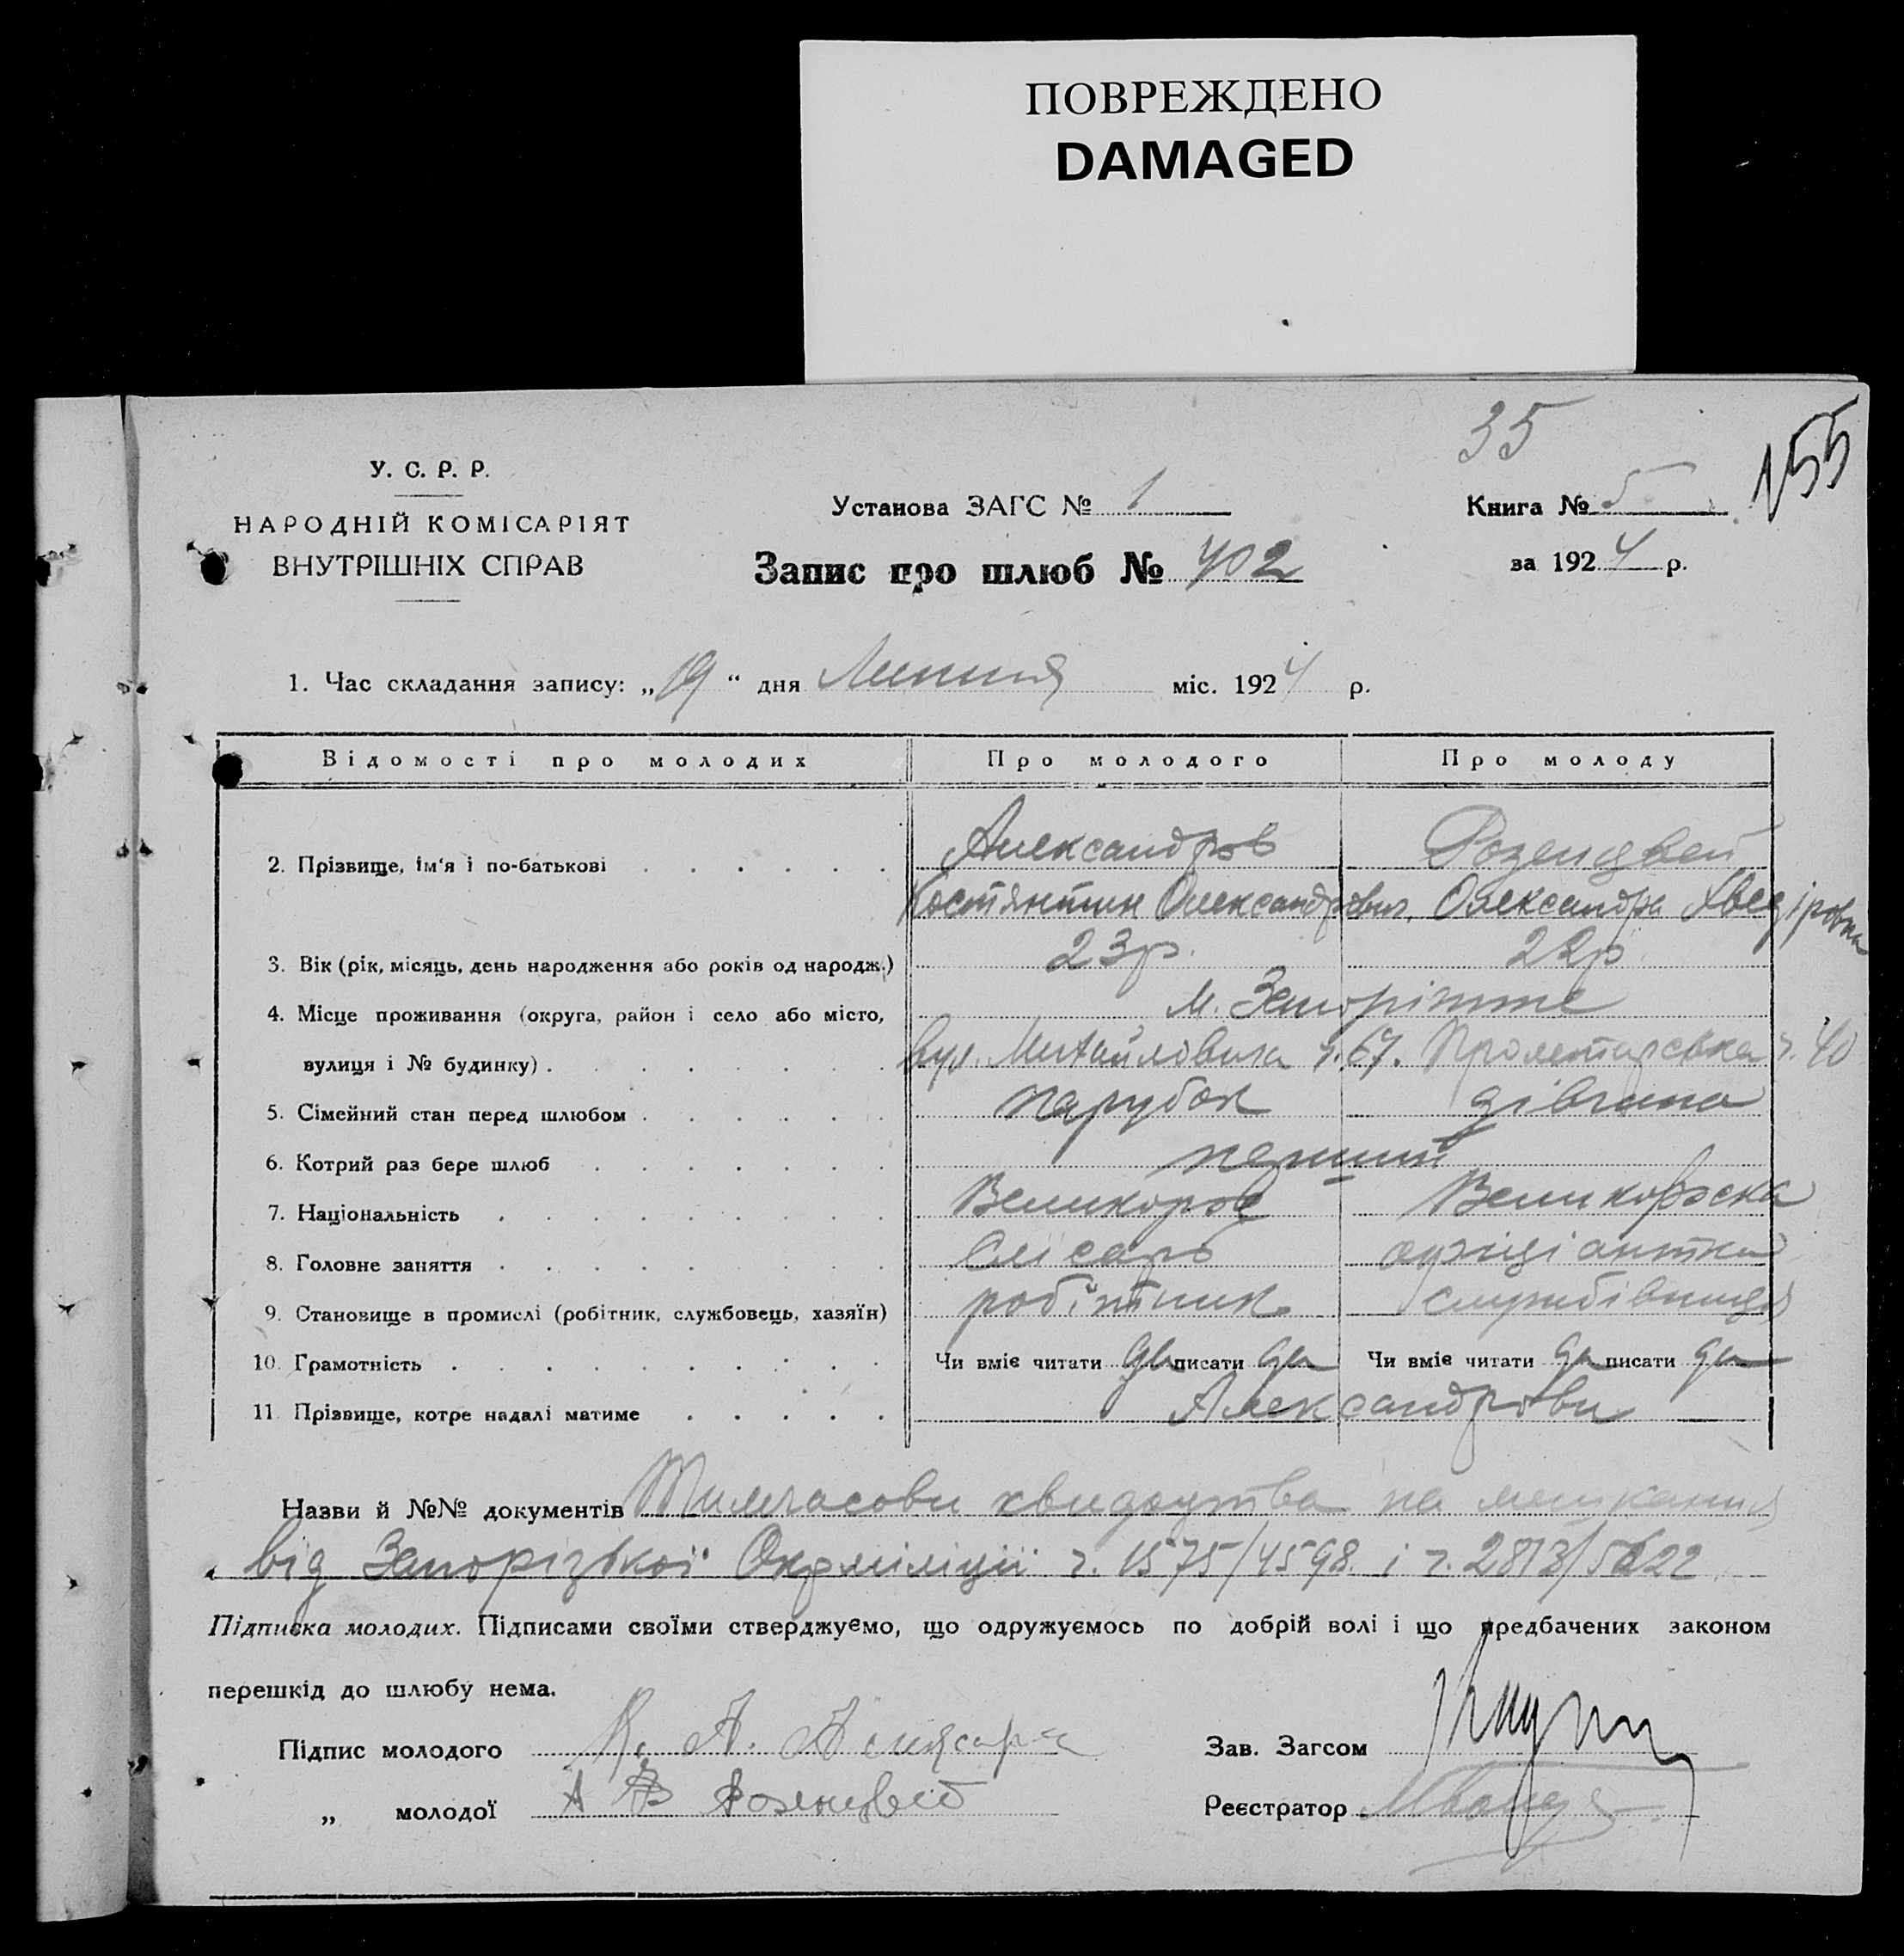 ПОВРЕЖДЕНО
DAMAGED
35
155
У. С. Р. Р.
НАРОДНІЙ КОМІСАРІЯТ
ВНУТРІШНІХ СПРАВ
Установа ЗАГС № 1
Книга № 5
Запис про шлюб № 402
за 1924 р.
1. Час складання запису: „19“ дня Липня міс. 1924 р.
Відомості про молодих Про молодого Про молоду
2. Прізвище, ім'я і по-батькові Александров Розенцвей
Костянтин Олександрович, Олександра Хведіровна
3. Вік (рік, місяць, день народження або років од народж.) 23 р. 22 р.
4. Місце проживання (округа, район і село або місто, м. Запоріжже
вулиця і № будинку) вул. Михайловича ч. 67. Пролетарська ч. 40
5. Сімейний стан перед шлюбом парубок дівчина
6. Котрий раз бере шлюб перший
7. Національність Великорос Великороска
8. Головне заняття Слісарь офіціантка
9. Становище в промислі (робітник, службовець, хазяїн) робітник службівниця
10. Грамотність Чи вміє читати да писати да Чи вміє читати да писати да
11. Прізвище, котре надалі матиме Александрови
Назви й №№ документів Тимчасови квидоцтва на мешкання
від Запорізької Окрміліції ч. 1575/4598 і ч. 2813/5622
Підписка молодих. Підписами своїми стверджуємо, що одружуємось по добрій волі і що предбачених законом
перешкід до шлюбу нема.
Підпис молодого К. А. Зав. Загсом
„ молодої А Розенцвей Реєстратор